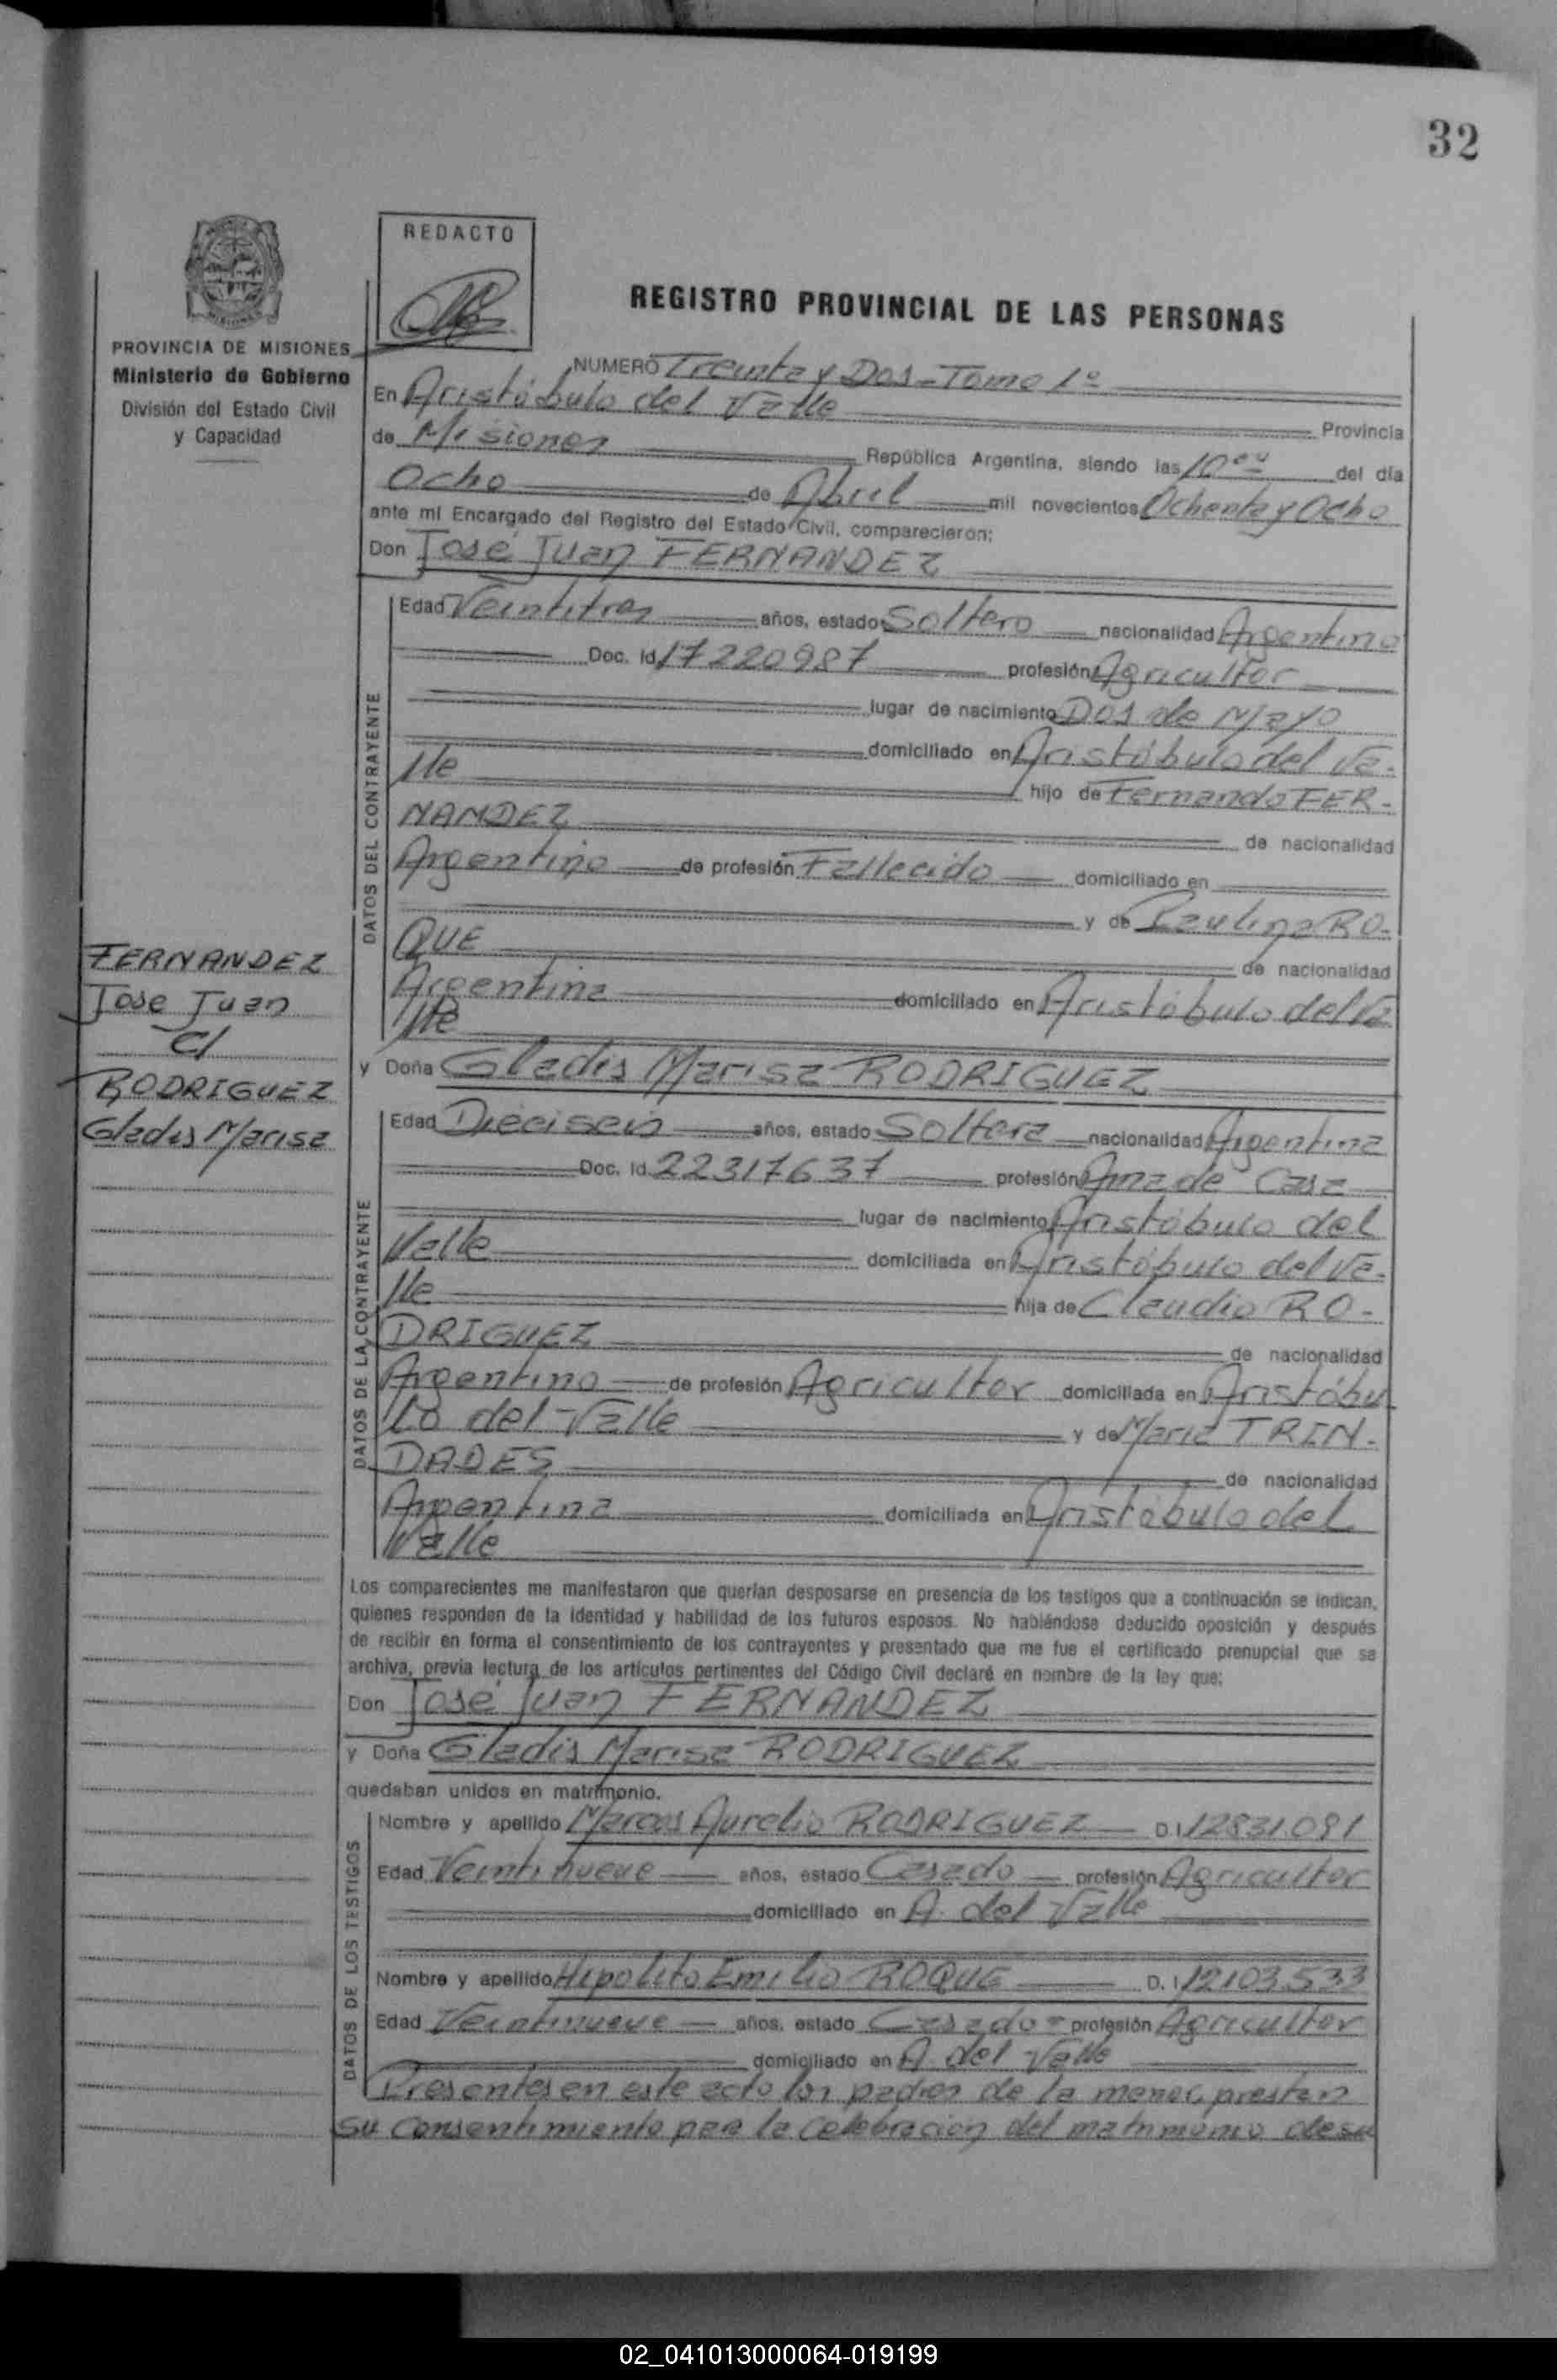 32
REDACTO
REGISTRO PROVINCIAL DE LAS PERSONAS
PROVINCIA DE MISIONES
Ministerio de Gobierno
División del Estado Civil
y Capacidad
NUMERO Treinta y Dos - Tomo 1º
En Aristóbulo del Valle Provincia
de Misiones República Argentina, siendo las 10 del día
Ocho de Abril mil novecientos Ochenta y Ocho
ante mi Encargado del Registro del Estado Civil, comparecieron:
Don José Juan FERNANDEZ
DATOS DEL CONTRAYENTE
Edad Veintitres años, estado Soltero nacionalidad Argentino
Doc. Id. 17220987 profesión Agricultor
lugar de nacimiento Dos de Mayo
domiciliado en Aristóbulo del Va-
lle hijo de Fernando FER-
NANDEZ de nacionalidad
Argentino de profesión Fallecido domiciliado en
y de Paulina RO-
QUE de nacionalidad
Argentina domiciliado en Aristóbulo del Va
lle
FERNANDEZ
Jose Juan
c/
RODRIGUEZ
Gladis Marisa
y Doña Gladis Marisa RODRIGUEZ
DATOS DE LA CONTRAYENTE
Edad Dieciseis años, estado Soltera nacionalidad Argentina
Doc. Id. 22317637 profesión Ama de Casa
lugar de nacimiento Aristóbulo del
Valle domiciliada en Aristóbulo del Va-
lle hija de Claudio RO-
DRIGUEZ de nacionalidad
Argentino de profesión Agricultor domiciliada en Aristóbu
lo del Valle y de Maria TRIN-
DADES de nacionalidad
Argentina domiciliada en Aristóbulo del
Valle
Los comparecientes me manifestaron que querían desposarse en presencia de los testigos que a continuación se indican,
quienes responden de la identidad y habilidad de los futuros esposos. No habiéndose deducido oposición y después
de recibir en forma el consentimiento de los contrayentes y presentado que me fue el certificado prenupcial que se
archiva, previa lectura de los artículos pertinentes del Código Civil declaré en nombre de la ley que:
Don José Juan FERNANDEZ
y Doña Gladis Marisa RODRIGUEZ
quedaban unidos en matrimonio.
DATOS DE LOS TESTIGOS
Nombre y apellido Marcos Aurelio RODRIGUEZ D.I. 12831.091
Edad Veintinueve años, estado Casado profesión Agricultor
domiciliado en A. del Valle
Nombre y apellido Hipolito Emilio ROQUE D.I. 12103.533
Edad Veintinueve años, estado Casado profesión Agricultor
domiciliado en A. del Valle
Presentes en este acto los padres de la menor, prestan
su consentimiento para la celebración del matrimonio de su
02_041013000064-019199